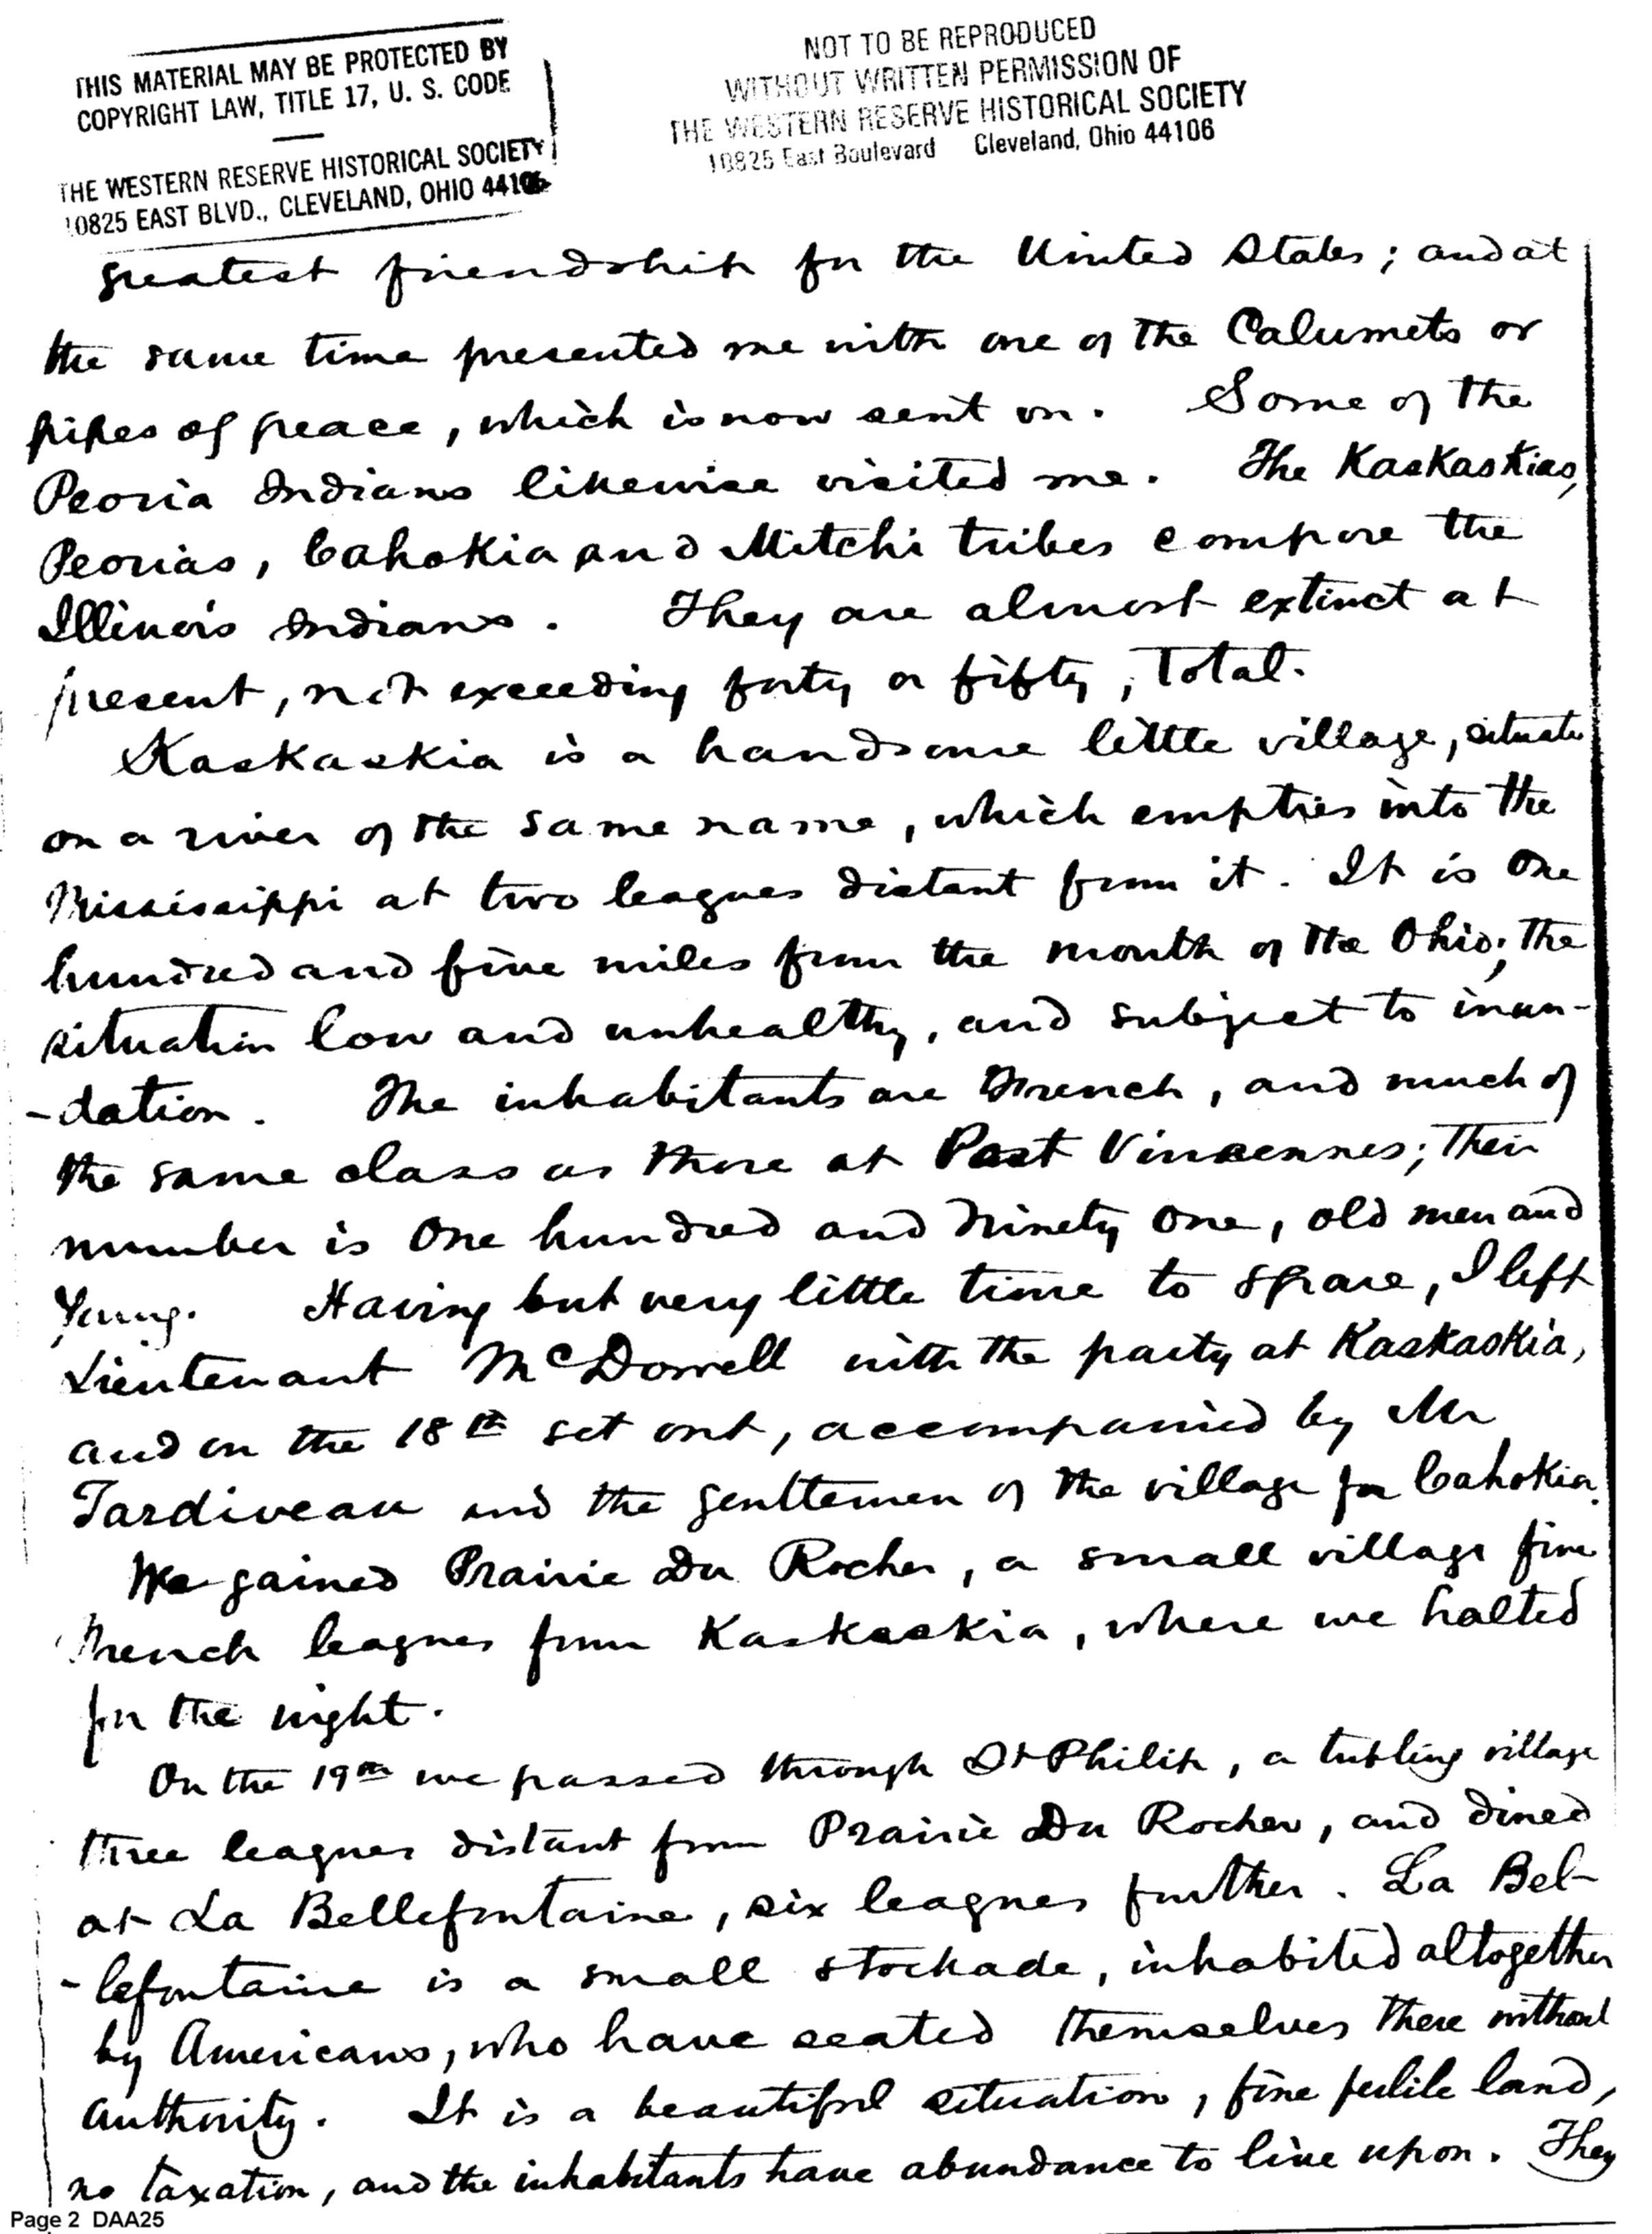 THIS MATERIAL MAY BE PROTECTED BY
COPYRIGHT LAW, TITLE 17, U. S. CODE
THE WESTERN RESERVE HISTORICAL SOCIETY
10825 EAST BLVD., CLEVELAND, OHIO 44106
NOT TO BE REPRODUCED
WITHOUT WRITTEN PERMISSION OF
THE WESTERN RESERVE HISTORICAL SOCIETY
10825 East Boulevard Cleveland, Ohio 44106
greatest friendship for the United States; and at
the same time presented me with one of the Calumets or
pipes of peace, which is now sent on. Some of the
Peoria Indians likewise visited me. The Kaskaskias,
Peorias, Cahokia and Mitchi tribes compose the
Illinois Indians. They are almost extinct at
present, not exceeding forty or fifty, total.
Kaskaskia is a handsome little village, situate
on a river of the same name, which empties into the
Mississippi at two leagues distant from it. It is one
hundred and five miles from the mouth of the Ohio; the
situation low and unhealthy, and subject to inun-
-dation. The inhabitants are French, and much of
the same class as those at Post Vincennes; their
number is one hundred and ninety one, old men and
young. Having but very little time to spare, I left
Lieutenant McDowell with the party at Kaskaskia,
and on the 18th set out, accompanied by Mr
Tardiveau and the gentlemen of the village for Cahokia.
We gained Prairie Du Rocher, a small village five
French leagues from Kaskaskia, where we halted
for the night.
On the 19th we passed through St Philip, a trifling village
three leagues distant from Prairie Du Rocher, and dined
at La Bellefontaine, six leagues further. La Bel-
-lefontaine is a small stockade, inhabited altogether
by Americans, who have seated themselves there without
authority. It is a beautiful situation, fine fertile land,
no taxation, and the inhabitants have abundance to live upon. They
Page 2 DAA25